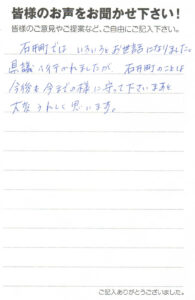 皆様のお声をお聞かせ下さい!
皆様のご意見やご提案など、ご自由にご記入下さい。
石井町では いろいろとお世話になりました。
県議へ行かれましたが、石井町のことは
今後も今までの様に守って下さいますと
大変うれしく思います。
ご記入ありがとうございました。